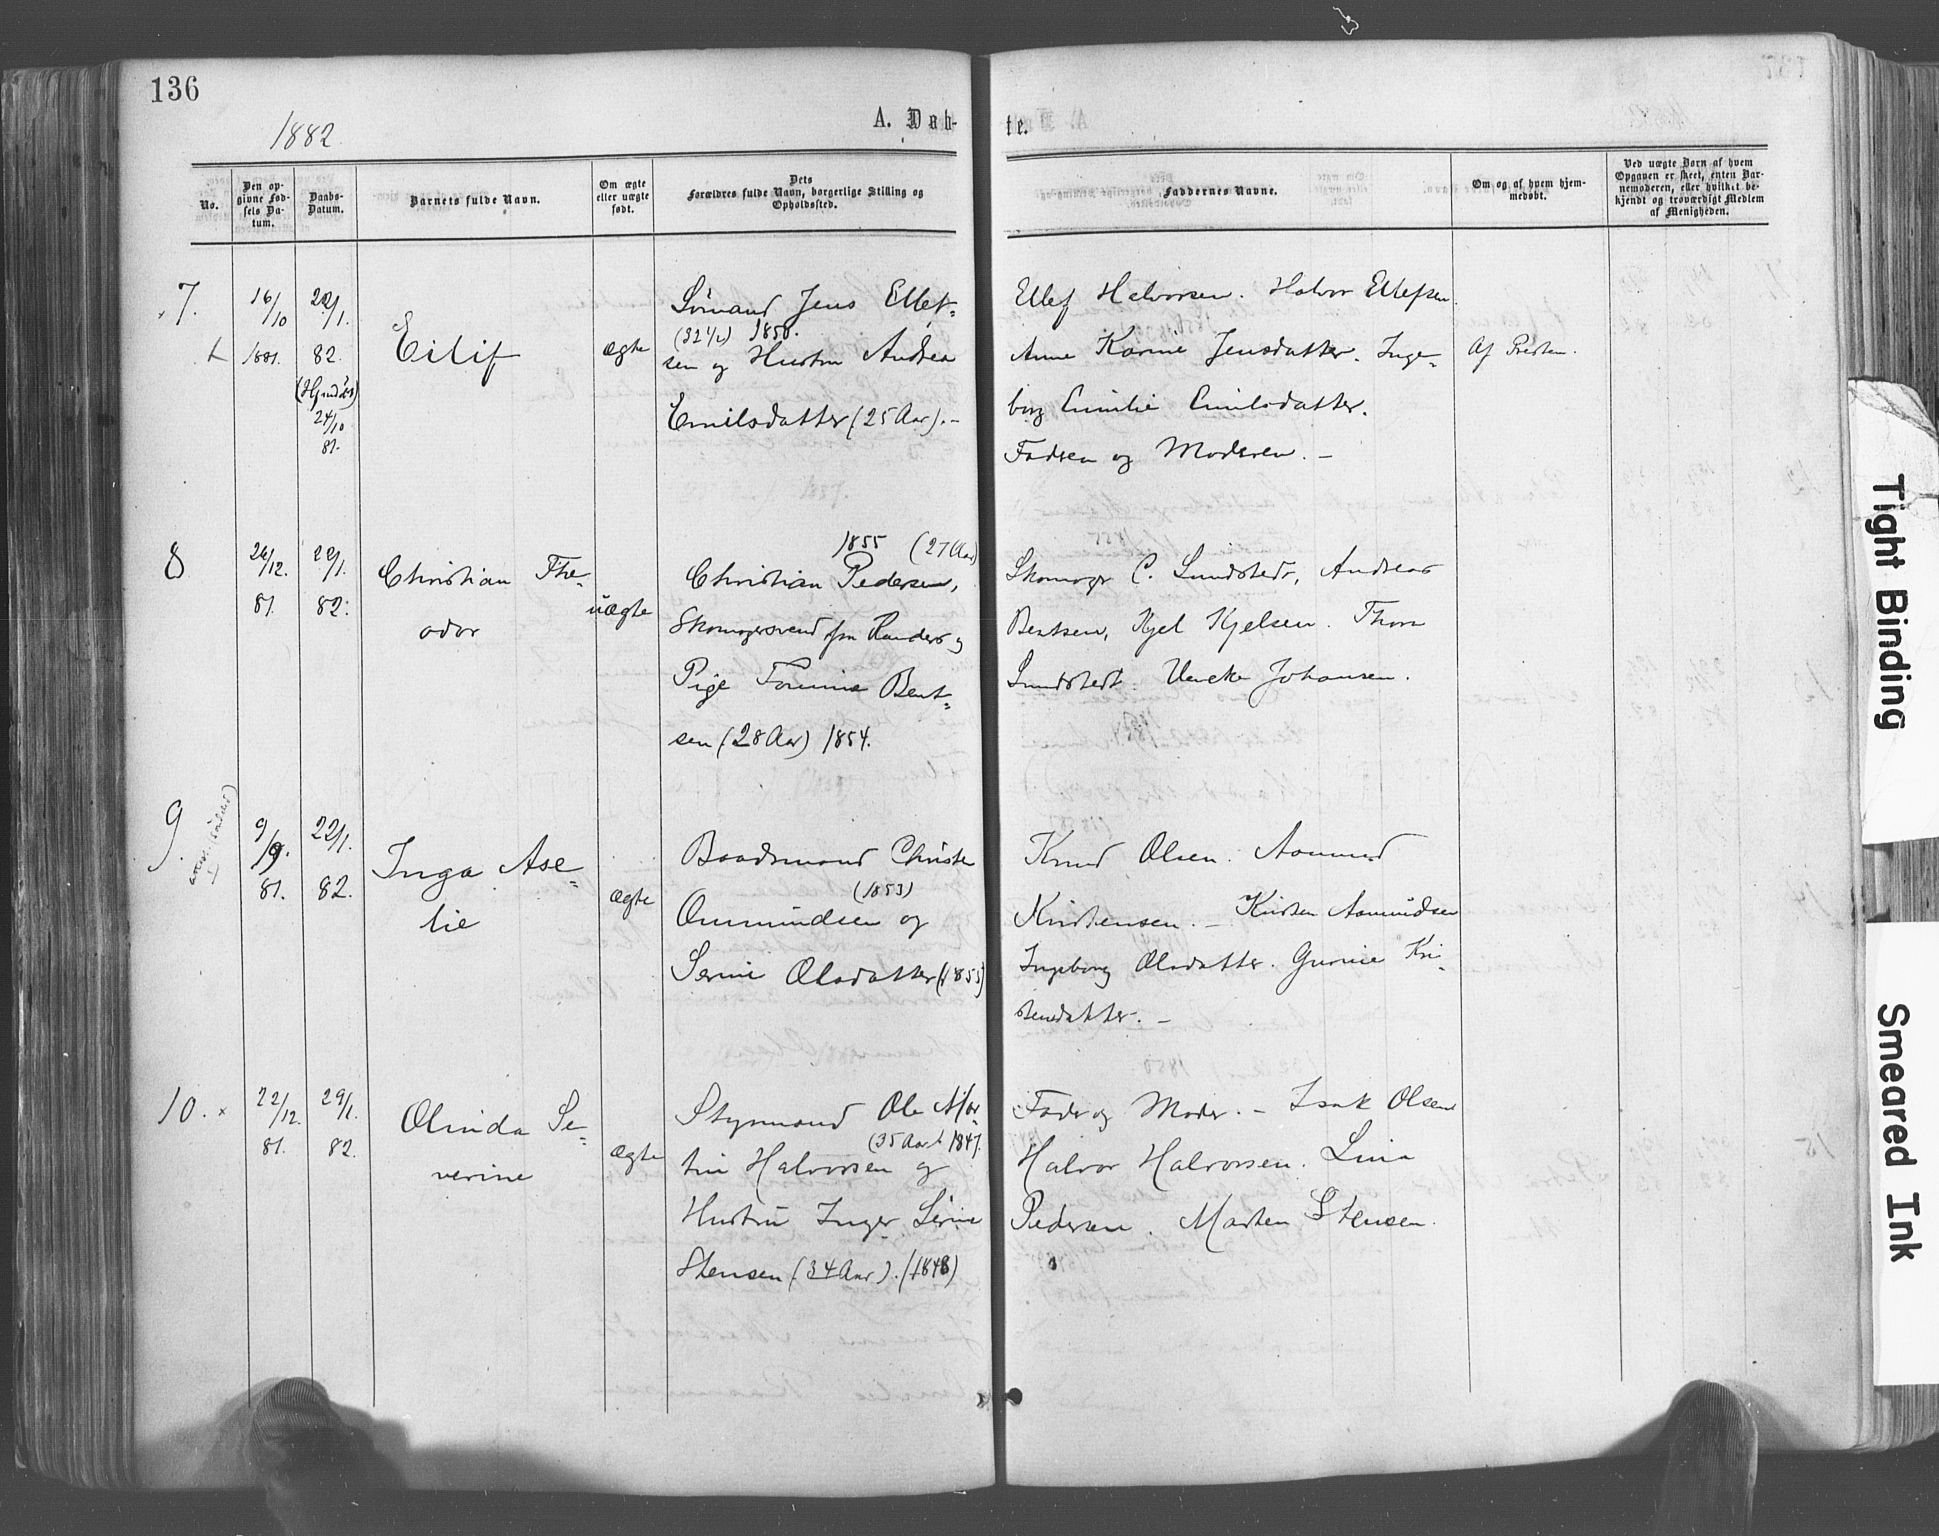 136
1882
A. Daab-
te.
No.
Den op-
givne Fød-
sels Da-
tum.
Daabs-
Datum.
Barnets fulde Navn.
Om ægte
eller uægte
født.
Dets
Forældres fulde Navn, borgerlige Stilling og
Opholdssted.
Faddernes Navne.
Om og af hvem hjem-
medøbt.
Ved uægte Børn af hvem
Opgaven er skeet, enten Bar-
nemoderen, eller hvilket be-
kjendt og troværdigt Medlem
af Menigheden.
7.
16/10
1881.
22/1.
82.
(Hjmdøbt)
24/10
81.
Eilif
ægte
Sømand Jens Ellef-
(32 1/2) 1850.
sen og Hustru Andrea
Emilsdatter (25 Aar). -
Ellef Halvorsen. Halvor Ellefsen.
Anne Karine Jensdatter. Inge-
borg Emilie Emilsdatter.
Fadren og Moderen. -
Af Presten.
8
26/12.
81.
22/1.
82.
Christian The-
odor
uægte
1855 (27 Aar)
Christian Pedersen,
Skomagersvend fra Randers og
Pige Tomine Bent-
sen (28 Aar) 1854.
Skomager C. Lundstedt, Andreas
Bentsen, Kjel Kjelsen. Thora
Lundstedt. Vencke Johansen.
9.
9/9.
81.
22/1.
82.
Inga Ase-
lie
ægte
Baadsmand Christen
(1853)
Ommundsen og
Serine Olsdatter (1855)
Knud Olsen. Aamund
Kristensen. - Kristen Aamundsen
Ingeborg Olsdatter. Gunnie Kri-
stensdatter. -
10. x
22/12.
81.
29/1.
82.
Olinda Se-
verine
ægte
Styrmand Ole Mar-
(35 Aar) 1847.
tin Halvorsen og
Hustru Inger Serine
Stensen (34 Aar). (1848)
Fader og Moder. - Isak Olsen
Halvor Halvorsen. Lina
Pedersen. Marten Stensen.
Tight Binding
Smeared Ink